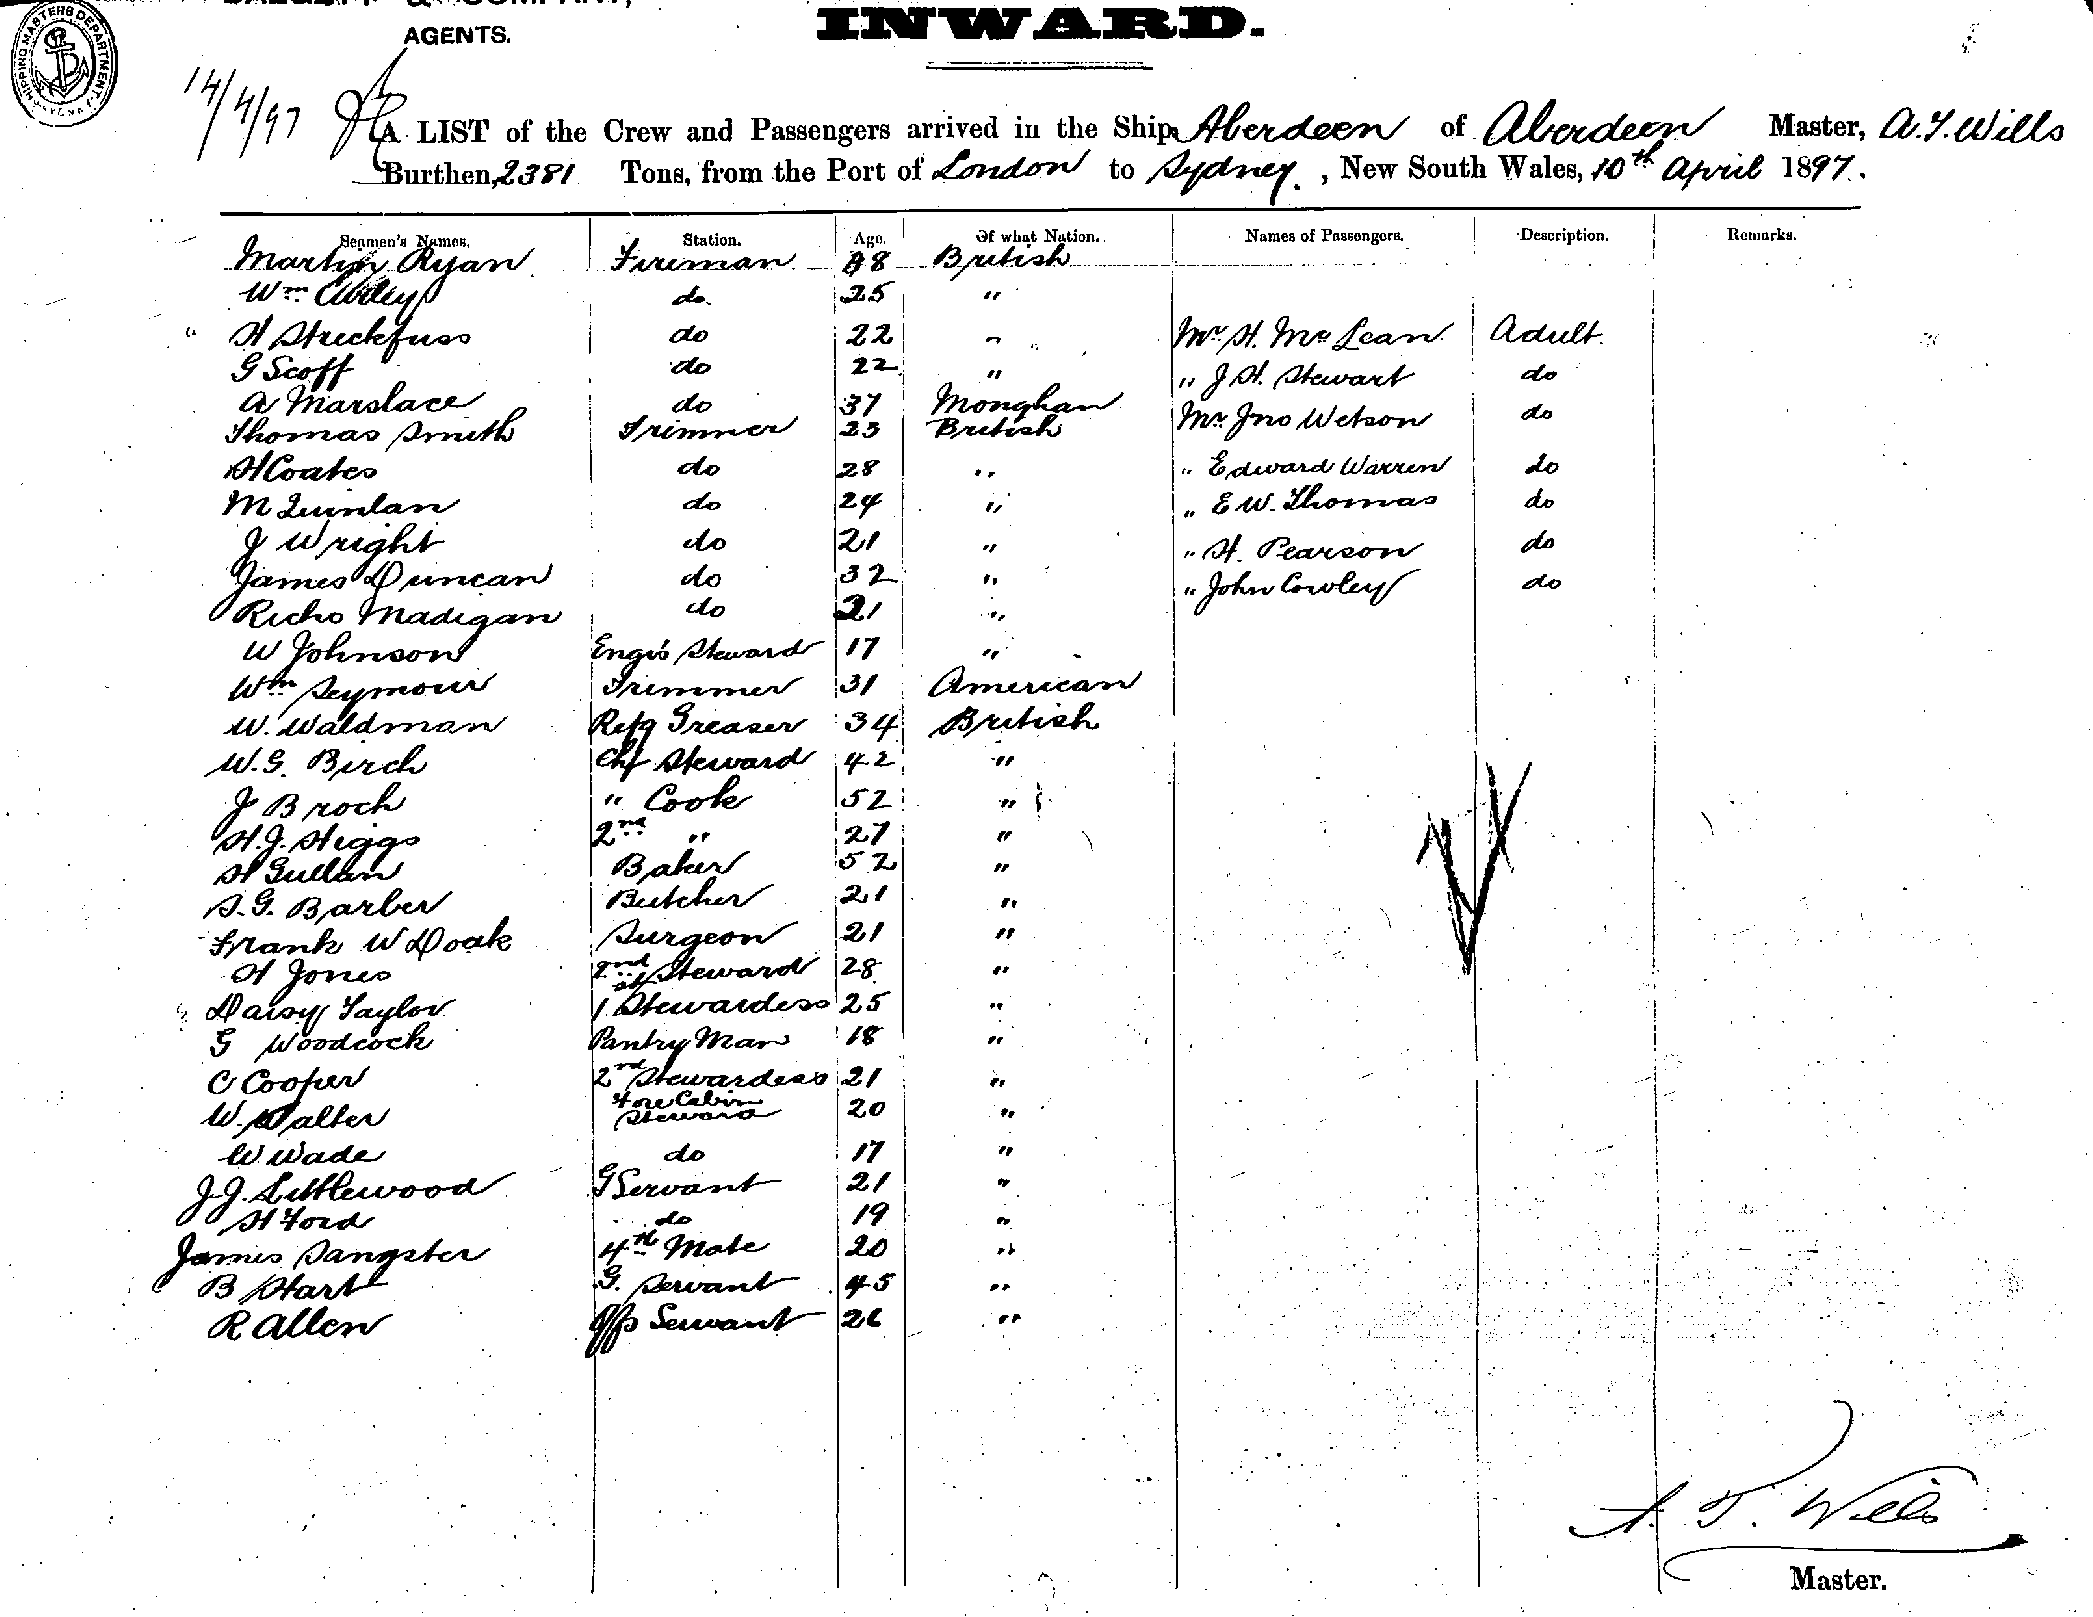 & COMPANY,
AGENTS.
INWARD.
SHIPPING MASTERS DEPARTMENT
14/4/97
A LIST of the Crew and Passengers arrived in the Ship Aberdeen of Aberdeen Master, A.T. Wills
Burthen, 2381 Tons, from the Port of London to Sydney, New South Wales, 10th April 1897.
Seamen's Names. Station. Age. Of what Nation. Names of Passengers. Description. Remarks.
Martin Ryan Fireman 38 British
Wm do. 25 "
H Streckfuss do 22 " Mr H. McLean Adult.
G Scoff do 22 " " J H. Stewart do
A Marslace do 37 Monghan Mr Jno Wetson do
Thomas Smith Trimmer 23 British
H Coates do 28 " " Edward Warren do
M Quinlan do 24 " " E W. Thomas do
J Wright do 21 " " H. Pearson do
James Duncan do 32 " " John Cowley do
Richd Madigan do 21 "
W Johnson Engrs Steward 17 "
Wm Seymour Trimmer 31 American
W. Waldman Refg Greaser 34 British
W. G. Birch Chf Steward 42 "
J Broch " Cook 52 "
H. J. Higgs 2nd " 27 "
H Gullan Baker 52 "
S. G. Barber Butcher 21 "
Frank W Doak Surgeon 21 "
H Jones 2nd Steward 28 "
Daisy Taylor 1st Stewardess 25 "
G Woodcock Pantry Man 18 "
C Cooper 2nd Stewardess 21 "
W. Salter Fore Cabin Steward 20 "
W Wade do 17 "
J. J. Littlewood G Servant 21 "
H Ford do 19 "
James Sangster 4th Mate 20 "
B Hart G. Servant 45 "
R Allen Servant 26 "
A. T. Wills
Master.